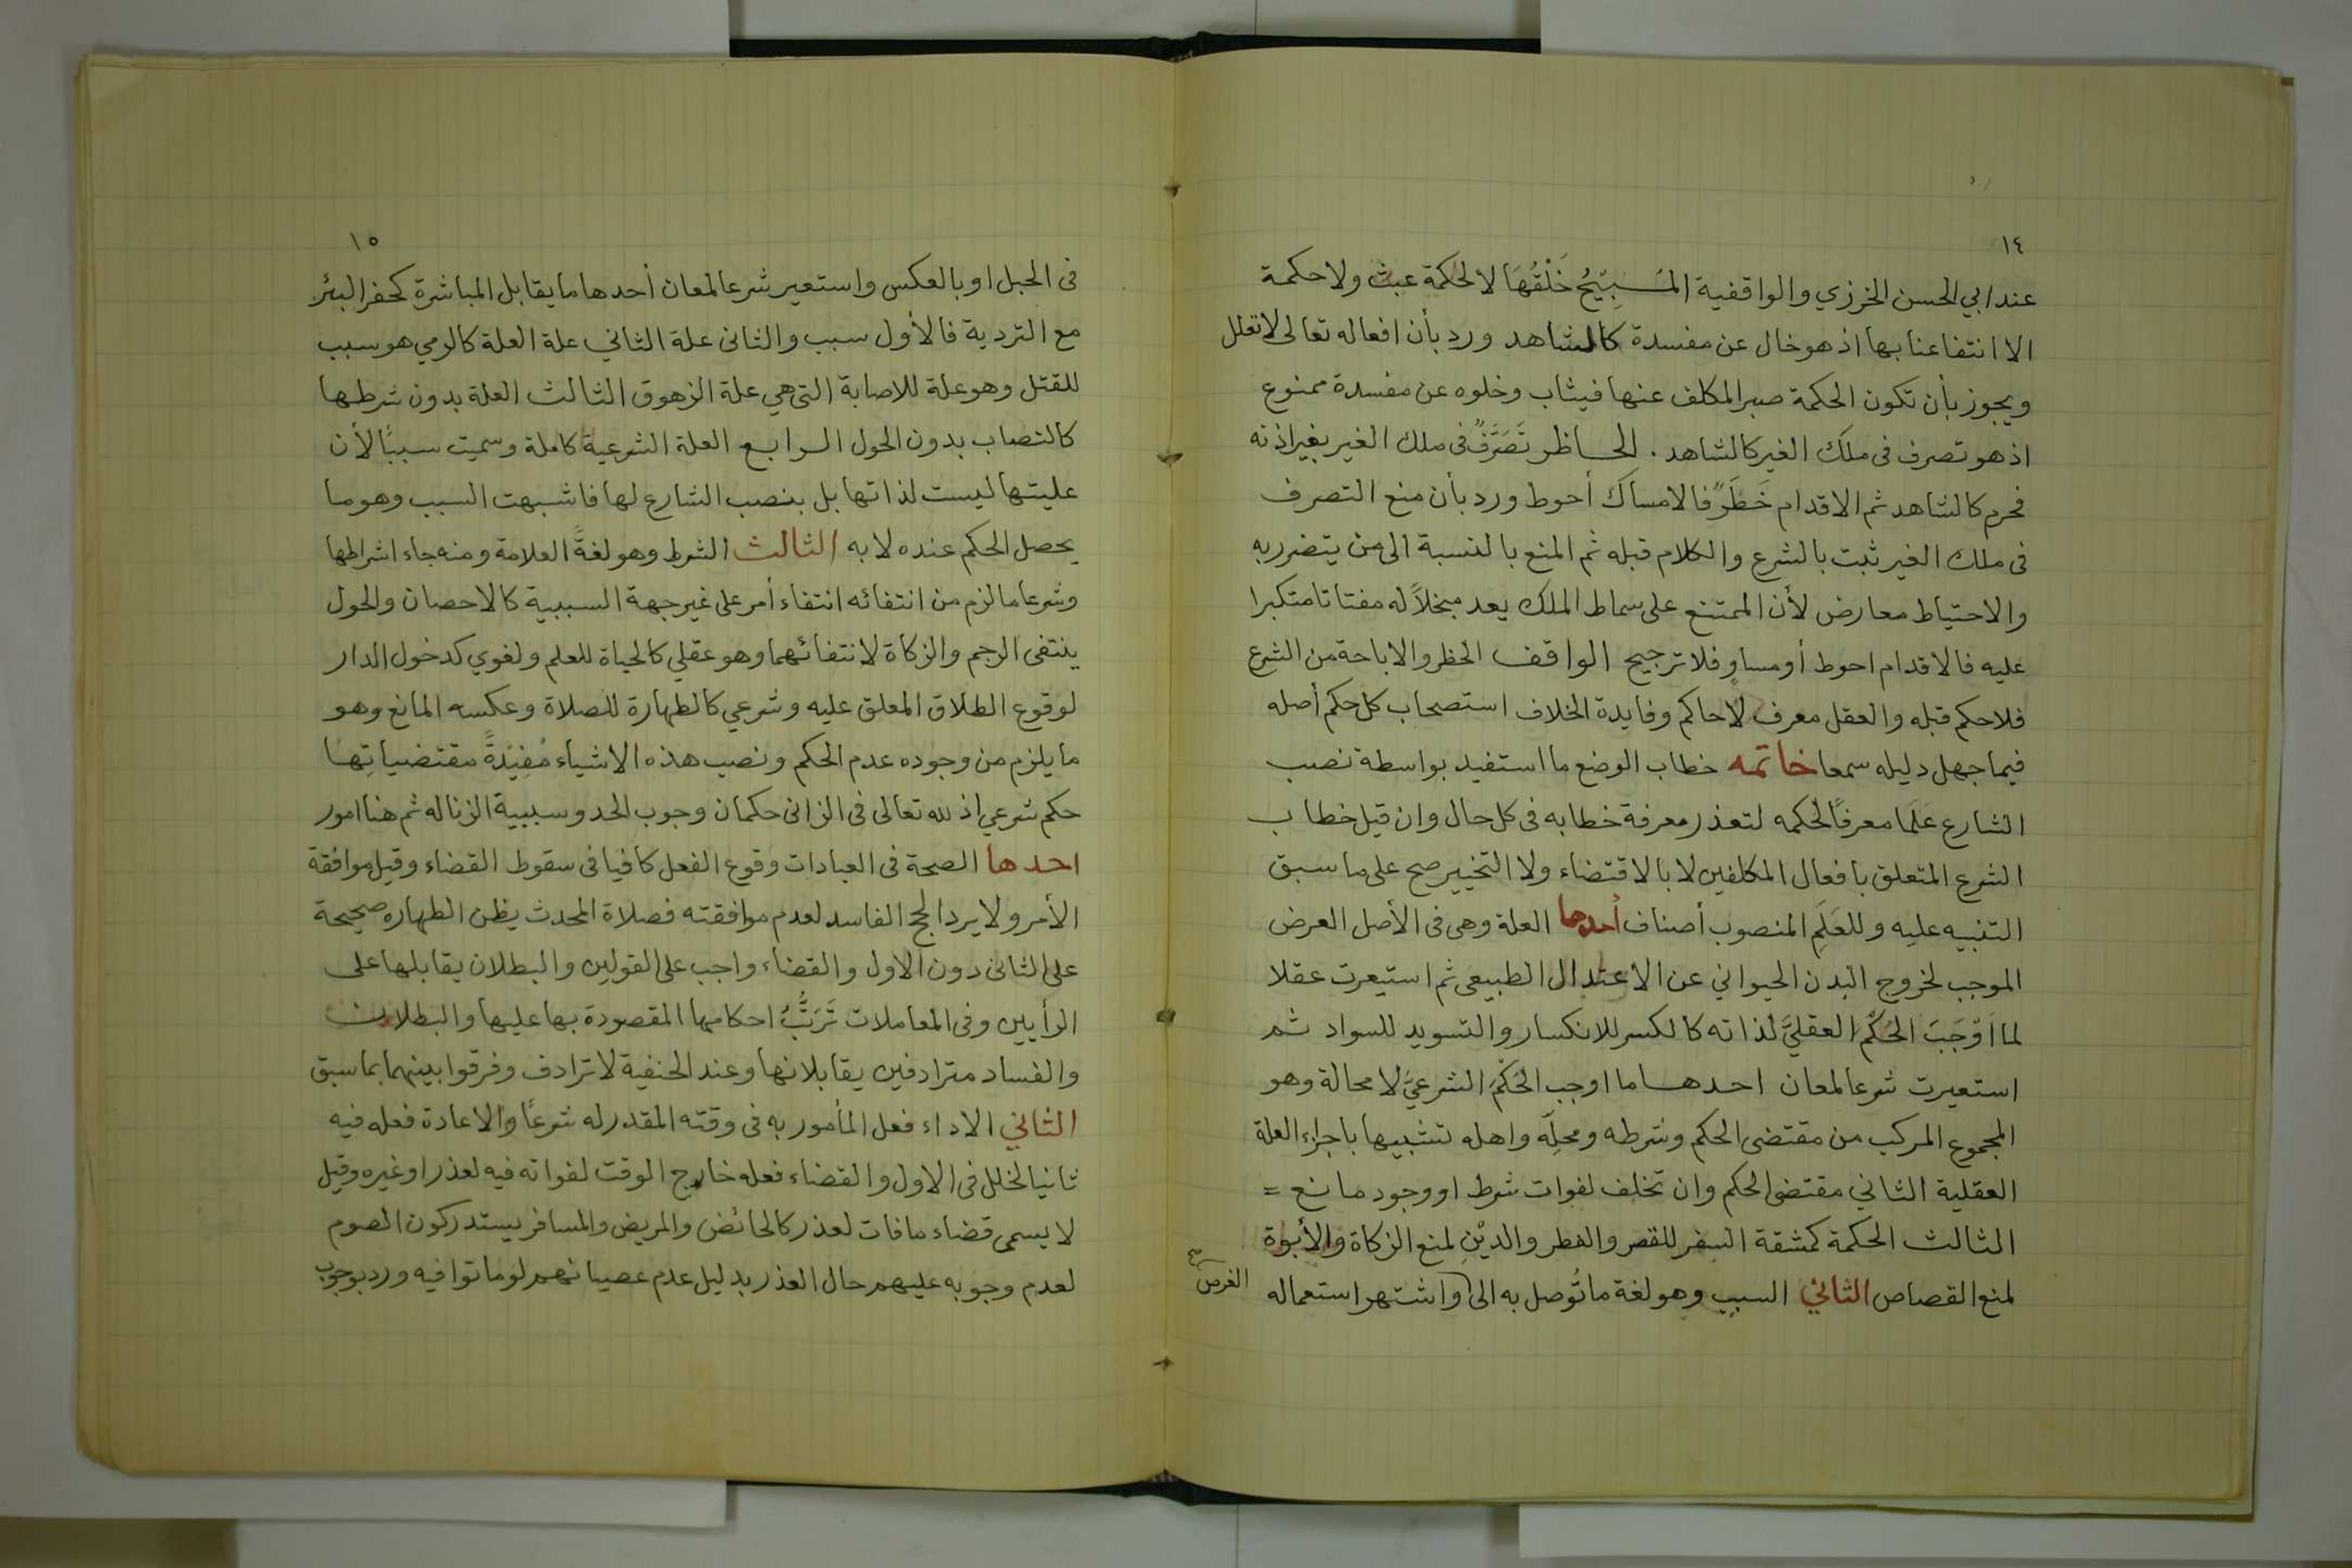 ١٤
عند ابي الحسن الخرزي والواقفية المُسَبِّبيُّ خَلْقُهَا لا لحكمة عبث ولا حكمة
الا انتفاعنا بها اذ هو خال عن مفسدة كالشاهد ورد بأن افعاله تعالى لا تعلل
ويجوز بأن تكون الحكمة صبر المكلف عنها فيثاب وخلوه عن مفسدة ممنوع
اذ هو تصرف فى ملك الغير كالشاهد . الحاظر تَصَرَّفٌ فى ملك الغير بغير اذنه
فحرم كالشاهد ثم الاقدام خَطَرٌ فالامساك أحوط ورد بأن منع التصرف
فى ملك الغير ثبت بالشرع والكلام قبله ثم المنع بالنسبة الى من يتضرر به
والاحتياط معارض لأن الممتنع على سماط الملك يعد مبخلاً له مفتاتا متكبرا
عليه فالاقدام احوط أو مساوٍ فلا ترجيح الواقف الحظر والاباحة من الشرع
فلا حكم قبله والعقل معرف لا حاكم وفايدة الخلاف استصحاب كل حكم أصله
فيما جهل دليله سمعا خاتمه خطاب الوضع ما استفيد بواسطة نصب
الشارع عَلَما معرفاً لحكمه لتعذر معرفة خطابه فى كل حال وان قيل خطاب
الشرع المتعلق بافعال المكلفين لا بالاقتضاء ولا التخيير صح على ما سبق
التنبيه عليه وللعَلَمِ المنصوب أصناف أحدها العلة وهى فى الأصل العرض
الموجب لخروج البدن الحيواني عن الاعتدال الطبيعى ثم استيعرت عقلا
لما اَوْجَبَ الحُكْمَ العقليَّ لذاته كالكسر للانكسار والتسويد للسواد ثم
استعيرت شرعا لمعان احدها ما اوجب الحُكْمَ الشرعيَّ لا محالة وهو
المجموع المركب من مقتضى الحكم وشرطه ومحلِّه واهله تشبيها باجزاء العلة
العقلية الثاني مقتضى الحكم وان تخلف لفوات شرط او وجود مانع =
الثالث الحكمة كمشقة السفر للقصر والفطر والديْنِ لمنع الزكاة والأبوة
لمنع القصاص الثاني السبب وهو لغة ما تُوصل به الى واشتهر استعماله
الغرض صح
١٥
فى الحبل او بالعكس واستعير شرعا لمعان أحدها ما يقابل المباشرة كحفر البئر
مع التردية فالأول سبب والثانى علة الثاني علة العلة كالرمي هو سبب
للقتل وهو علة للاصابة التى هي علة الزهوق الثالث العلة بدون شرطها
كالنصاب بدون الحول الرابع العلة الشرعية كاملة وسميت سبباً لأن
عليتها ليست لذاتها بل بنصب الشارع لها فاشبهت السبب وهو ما
يحصل الحكم عنده لا به الثالث الشرط وهو لغةً العلامة ومنه جاء اشراطها
وشرعا ما لزم من انتفائه انتفاء أمر على غير جهة السببية كالاحصان والحول
ينتفى الرجم والزكاة لانتفائهما وهو عقلي كالحياة للعلم ولغوي كدخول الدار
لوقوع الطلاق المعلق عليه وشرعي كالطهارة للصلاة وعكسه المانع وهو
ما يلزم من وجوده عدم الحكم ونصب هذه الاشياء مُفِيْدَةً مقتضياتِها
حكم شرعي اذ لله تعالى فى الزانى حكمان وجوب الحد وسببية الزنا له ثم هنا امور
احدها الصحة فى العبادات وقوع الفعل كافيا فى سقوط القضاء وقيل موافقة
الأمر ولا يرد الحج الفاسد لعدم موافقته فصلاة المحدث يظن الطهاره صحيحة
على الثانى دون الاول والقضاء واجب على القولين والبطلان يقابلها على
الرأيين وفى المعاملات تَرَتُّبُ احكامها المقصودة بها عليها والبطلان
والفساد مترادفين يقابلانها وعند الحنفية لا ترادف وفرقوا بينهما بما سبق
الثاني الاداء فعل المأمور به فى وقته المقدر له شرعًا والاعادة فعله فيه
ثانيا لخلل فى الاول والقضاء فعله خارج الوقت لفواته فيه لعذر او غيره وقيل
لا يسمى قضاء ما فات لعذر كالحائض والمريض والمسافر يستدركون الصوم
لعدم وجوبه عليهم حال العذر بدليل عدم عصيانهم لو ماتوا فيه ورد بوجوب